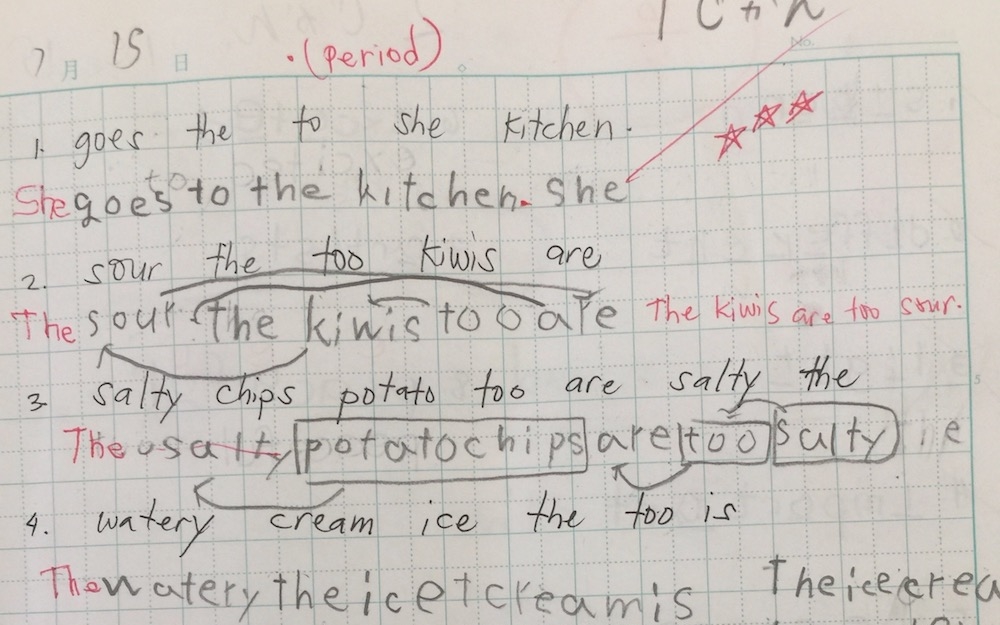 7月 15 日 .(period)
No.
1. goes the to she kitchen.
She goes to the kitchen. she
2. sour the too kiwis are
The sour the kiwis too are The kiwis are too sour.
3 salty chips potato too are salty the
The salty potatochips are too salty
4. watery cream ice the too is
The watery the ice cream is The ice crea